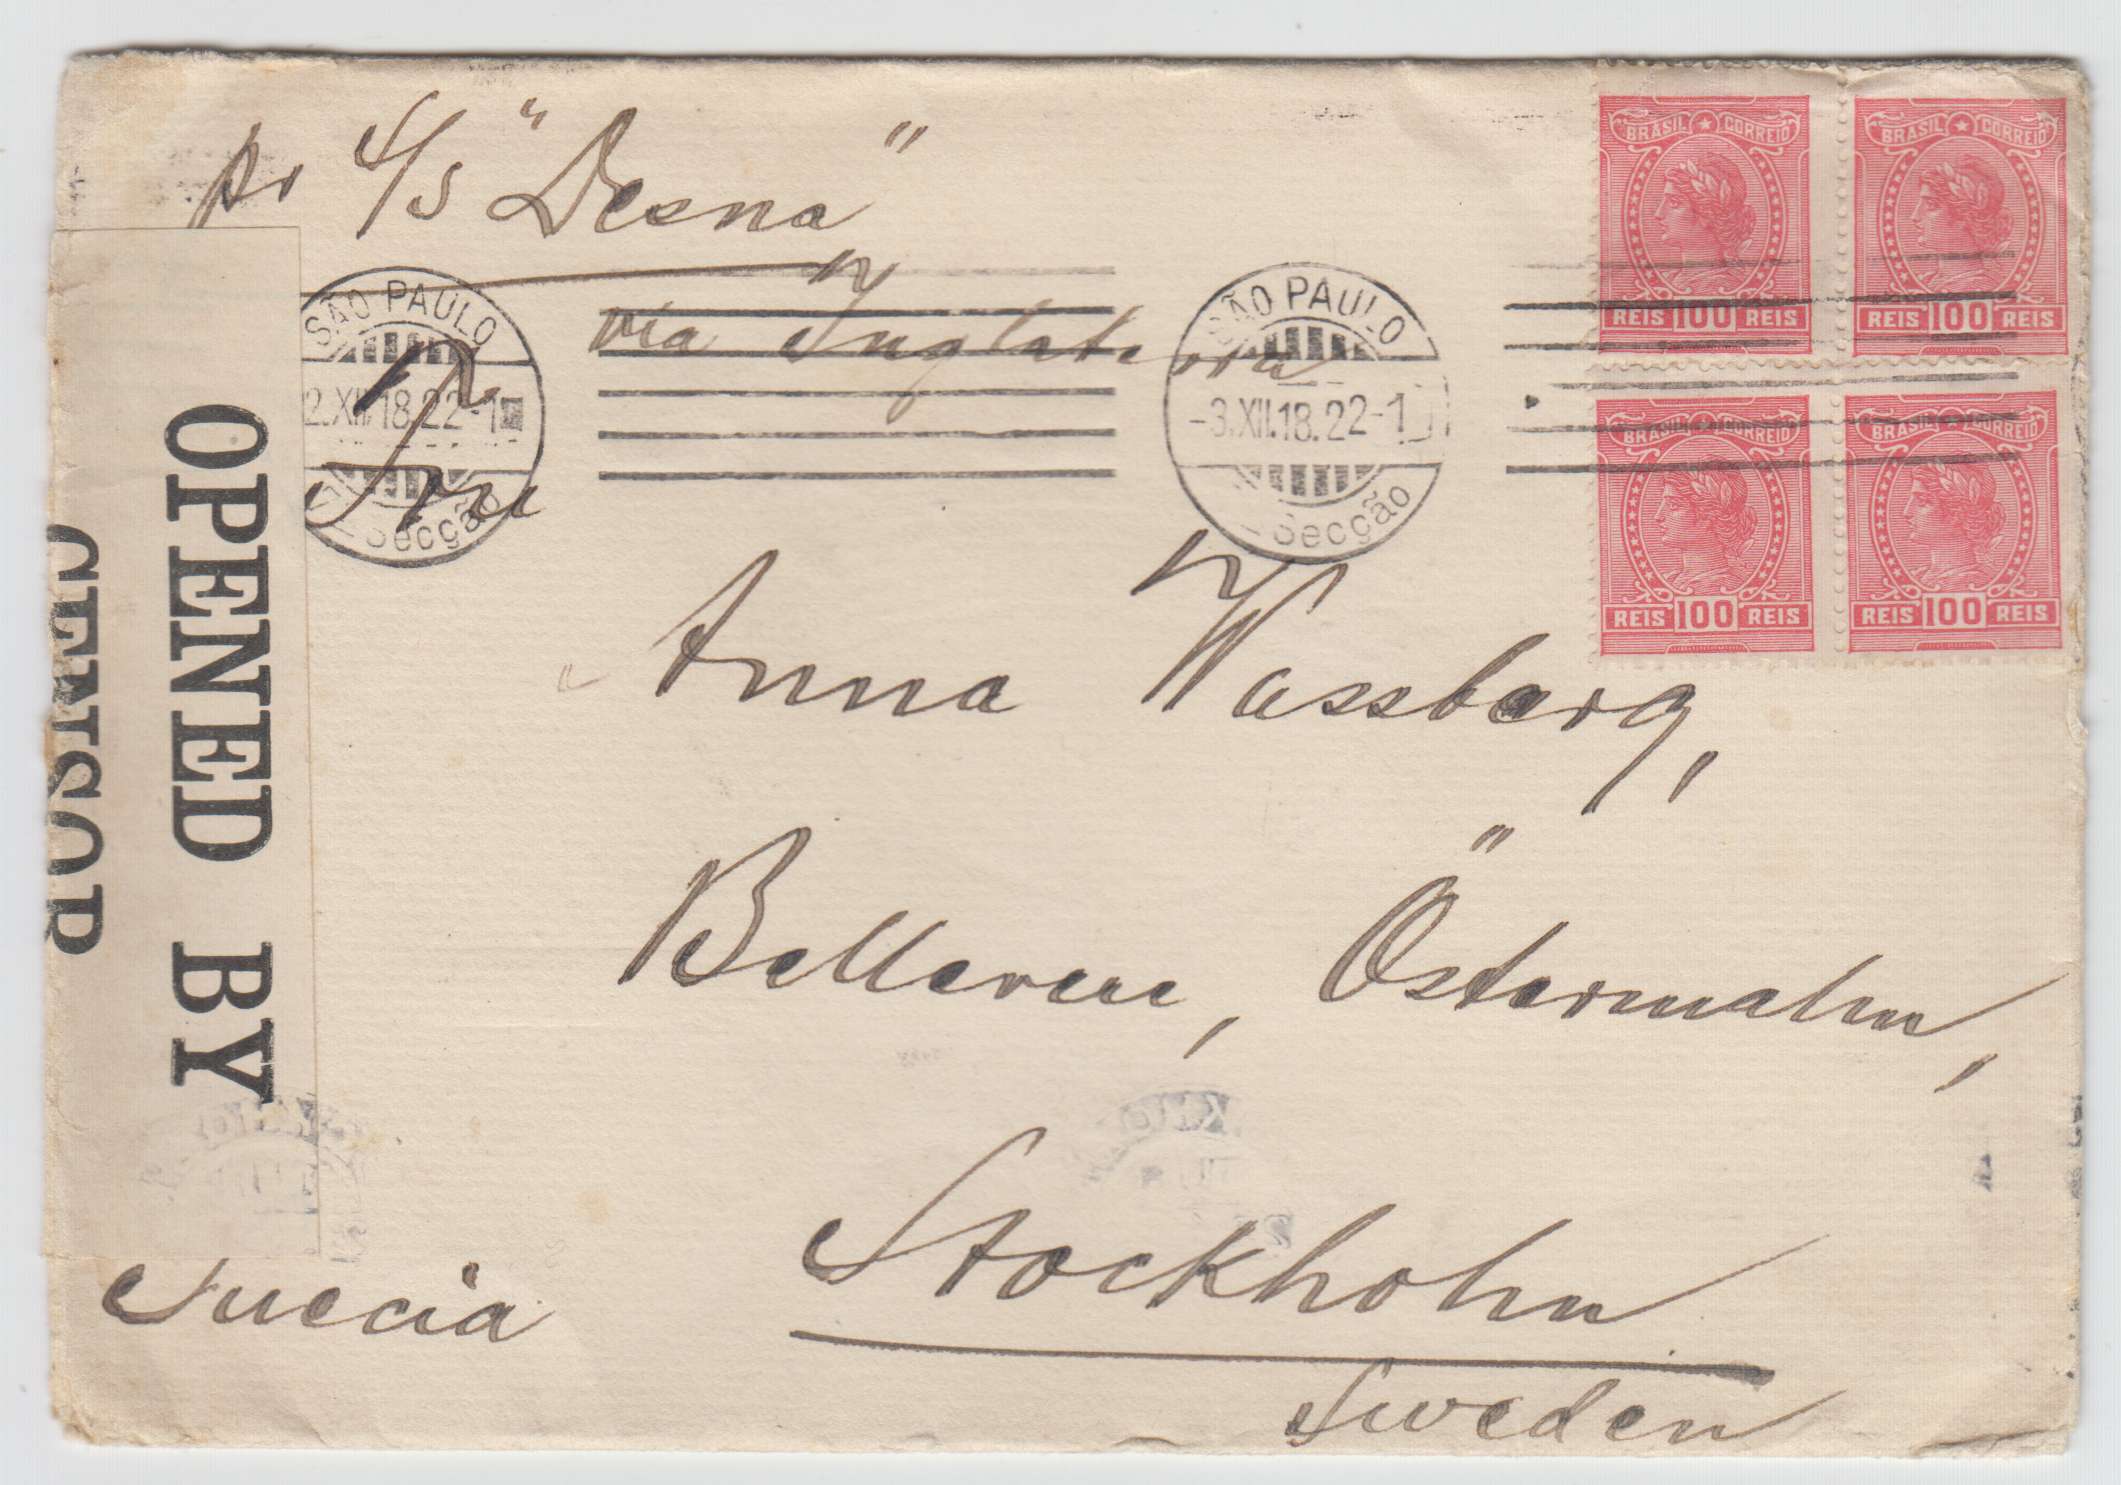 pr S/S "Desna"
via Inglaterra
BRASIL CORREIO
REIS 100 REIS
BRASIL CORREIO
REIS 100 REIS
BRASIL CORREIO
REIS 100 REIS
BRASIL CORREIO
REIS 100 REIS
SÃO PAULO
2.XII.18.22-1
Secção
SÃO PAULO
-3.XII.18.22-1
Secção
OPENED BY
CENSOR
Anna Wassberg,
Bellevue, Östermalm,
Stockholm
Suecia
Sweden